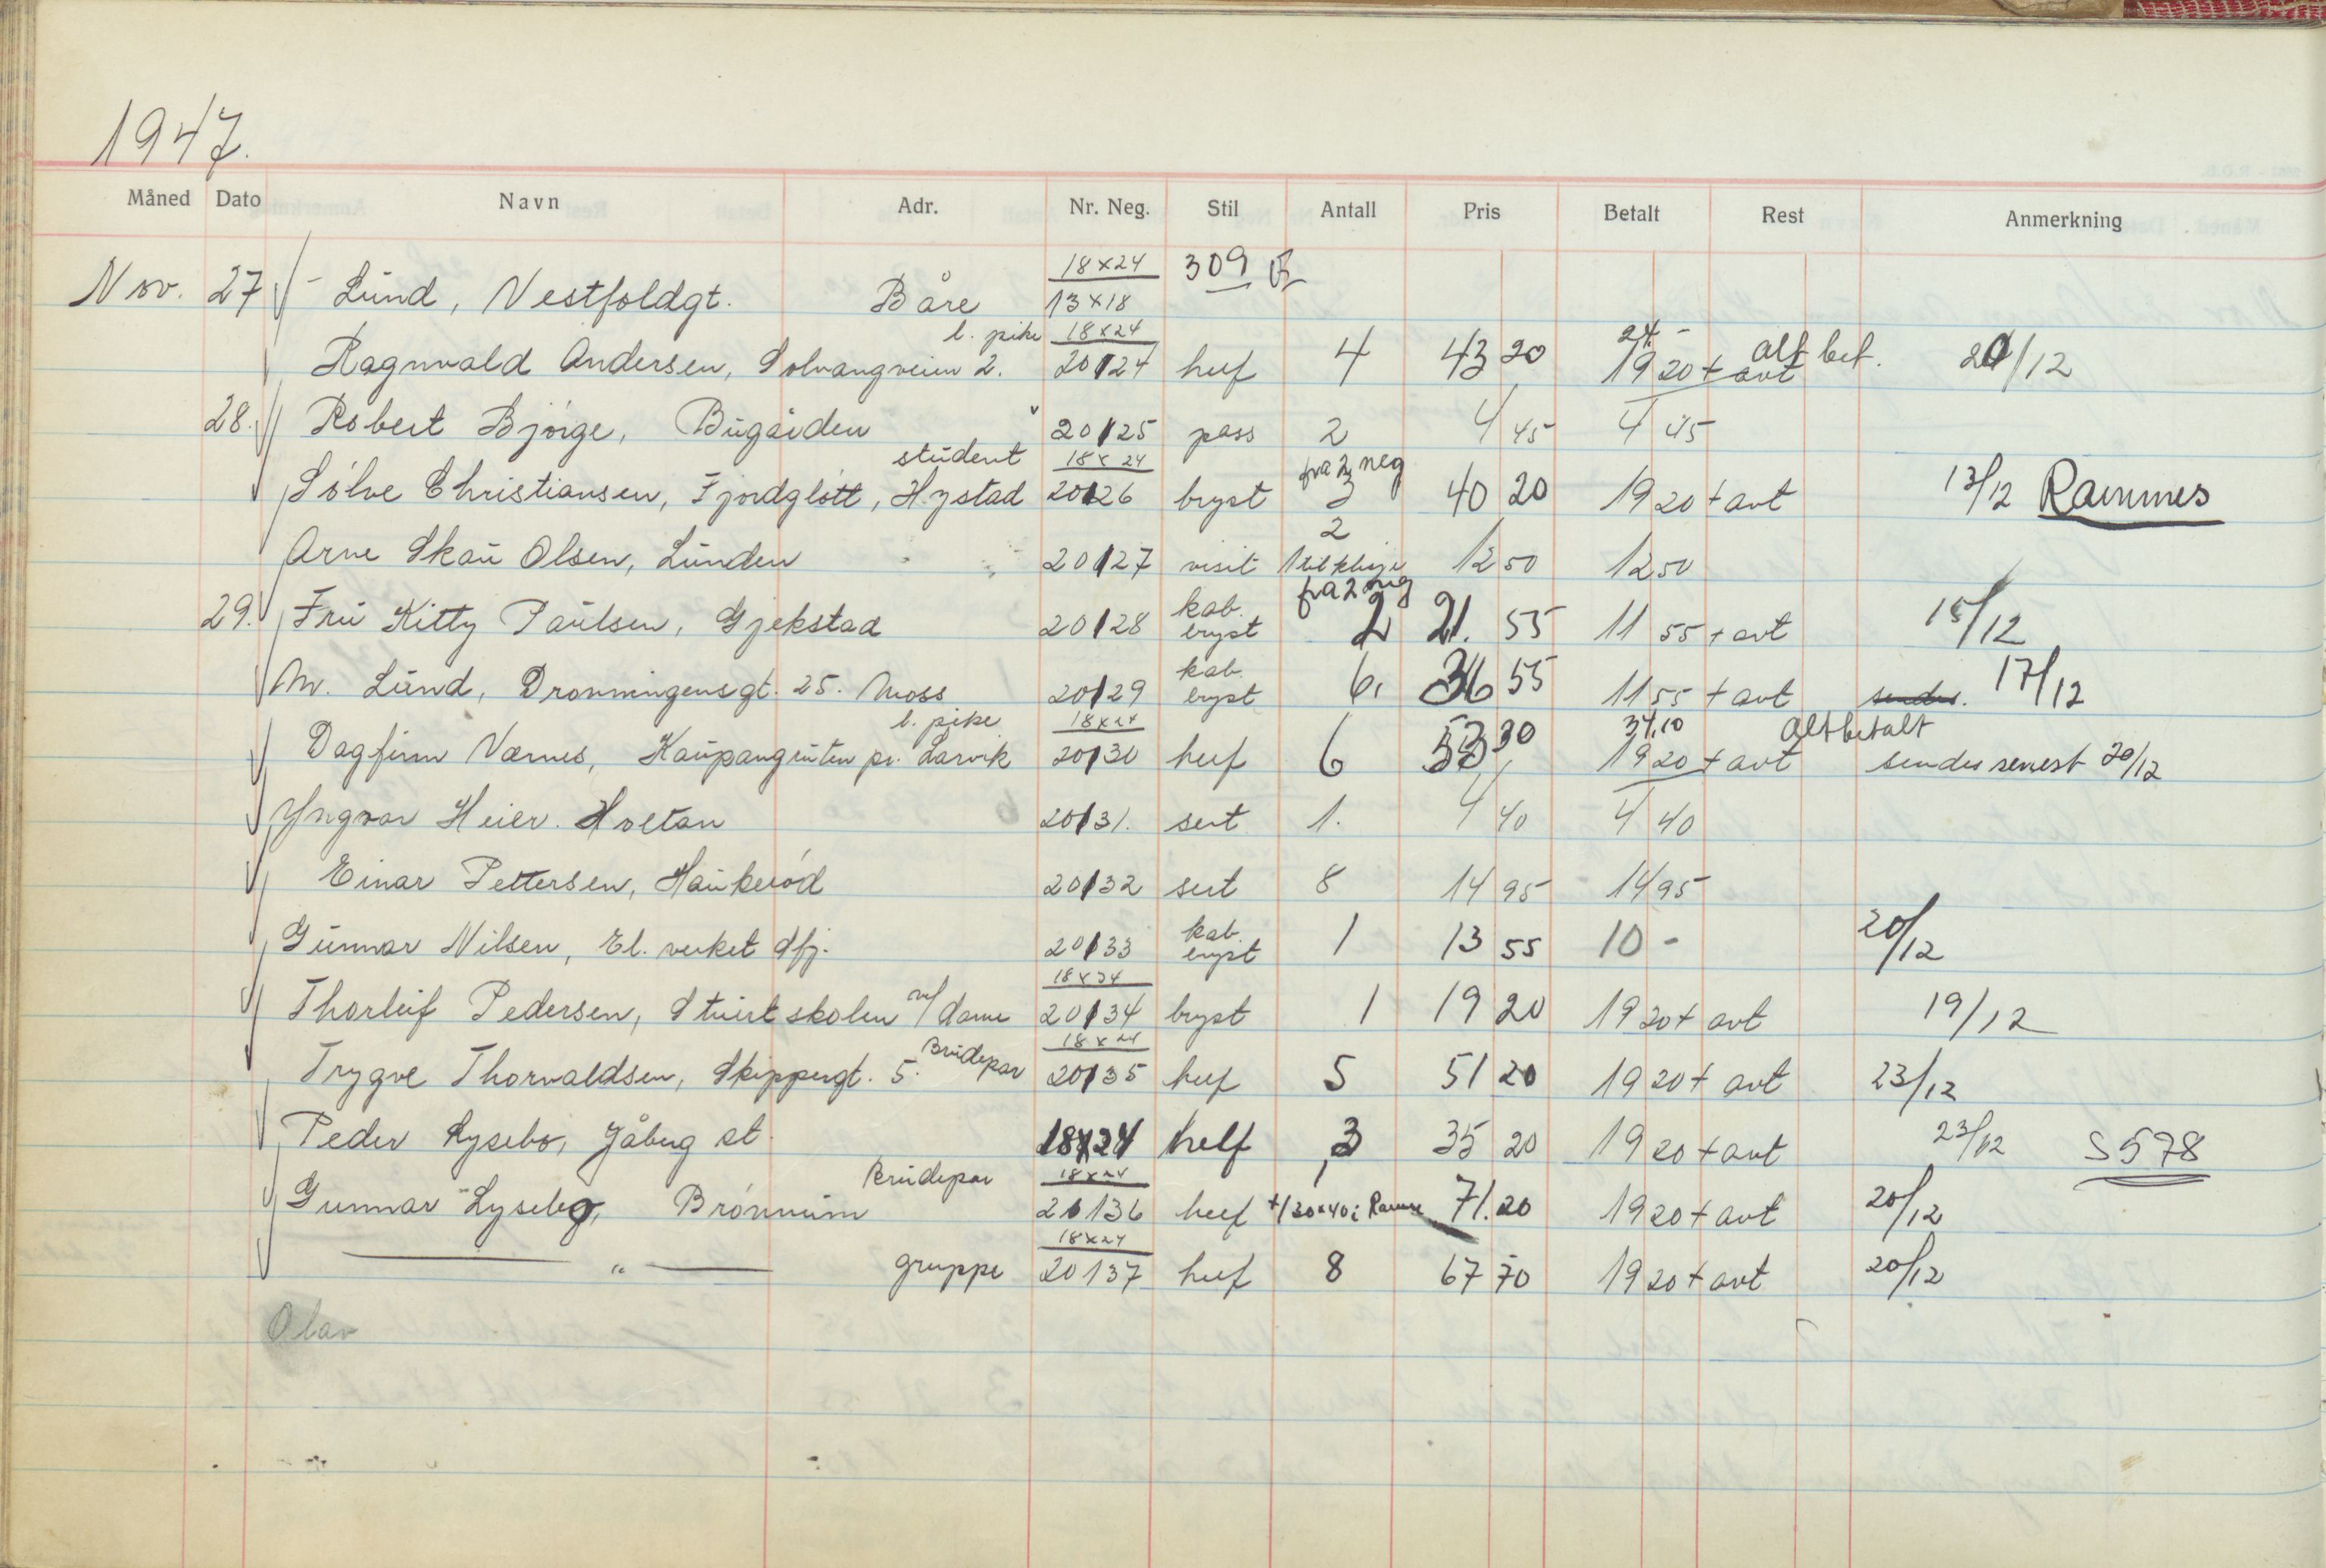 1947.
Måned Dato Navn Adr. Nr. Neg. Stil Antall Pris Betalt Rest Anmerkning
Nov. 27 Lund, Vestfoldgt. Båre 18x24 13x18 309
l. pike 18x24 24.-
Ragnvald Andersen, Solvangveien 2. 20124 helf 4 43 20 19 20 + avt alt bet. 20/12
28. Robert Bjørge, Bugården 20125 pass 2 4 45 4 45
student 18x24 fra 2 neg
Sølve Christiansen, Fjordgløtt, Hystad 20126 bryst 3 40 20 19 20 + avt 13/12 Rammes
2
Arne Skau Olsen, Lunden 20127 visit 1 12 50 12 50
kab. fra 2 neg
29. Fru Kitty Paulsen, Gjekstad 20128 bryst 2 21. 55 11 55 + avt 15/12
kab.
M. Lund, Dronningensgt. 25. Moss 20129 bryst 6. 36 55 11 55 + avt sendes. 17/12
l. pike 18x24 34.10 Alt betalt
Dagfinn Værnes, pr. Larvik 20130 helf 6 53 30 19 20 + avt sendes senest 20/12
Yngvar Heier. Hvetan 20131. sert 1. 4 40 4 40
Einar Pettersen, Haukerød 20132 sert 8 14 95 14 95
kab.
Gunnar Nilsen, El. verket Sfj. 20133 bryst 1 13 55 10 - 20/12
18x24
Thorleif Pedersen, Stuertskolen m/dame 20134 bryst 1 19 20 19 20 + avt 19/12
Brudepar 18x24
Trygve Thorvaldsen, Skippergt. 5. 20135 helf 5 51 20 19 20 + avt 23/12
Peder Lysebo, Jåberg st. 18x24 helf 3 35 20 19 20 + avt 23/12 S 578
Brudepar 18x24
Gunnar Lysebo, Brønnum 20136 helf +1 30x40 i Ramme 71.20 19 20 + avt 20/12
18x24
— " — gruppe 20137 helf 8 67 70 19 20 + avt 20/12
Olav